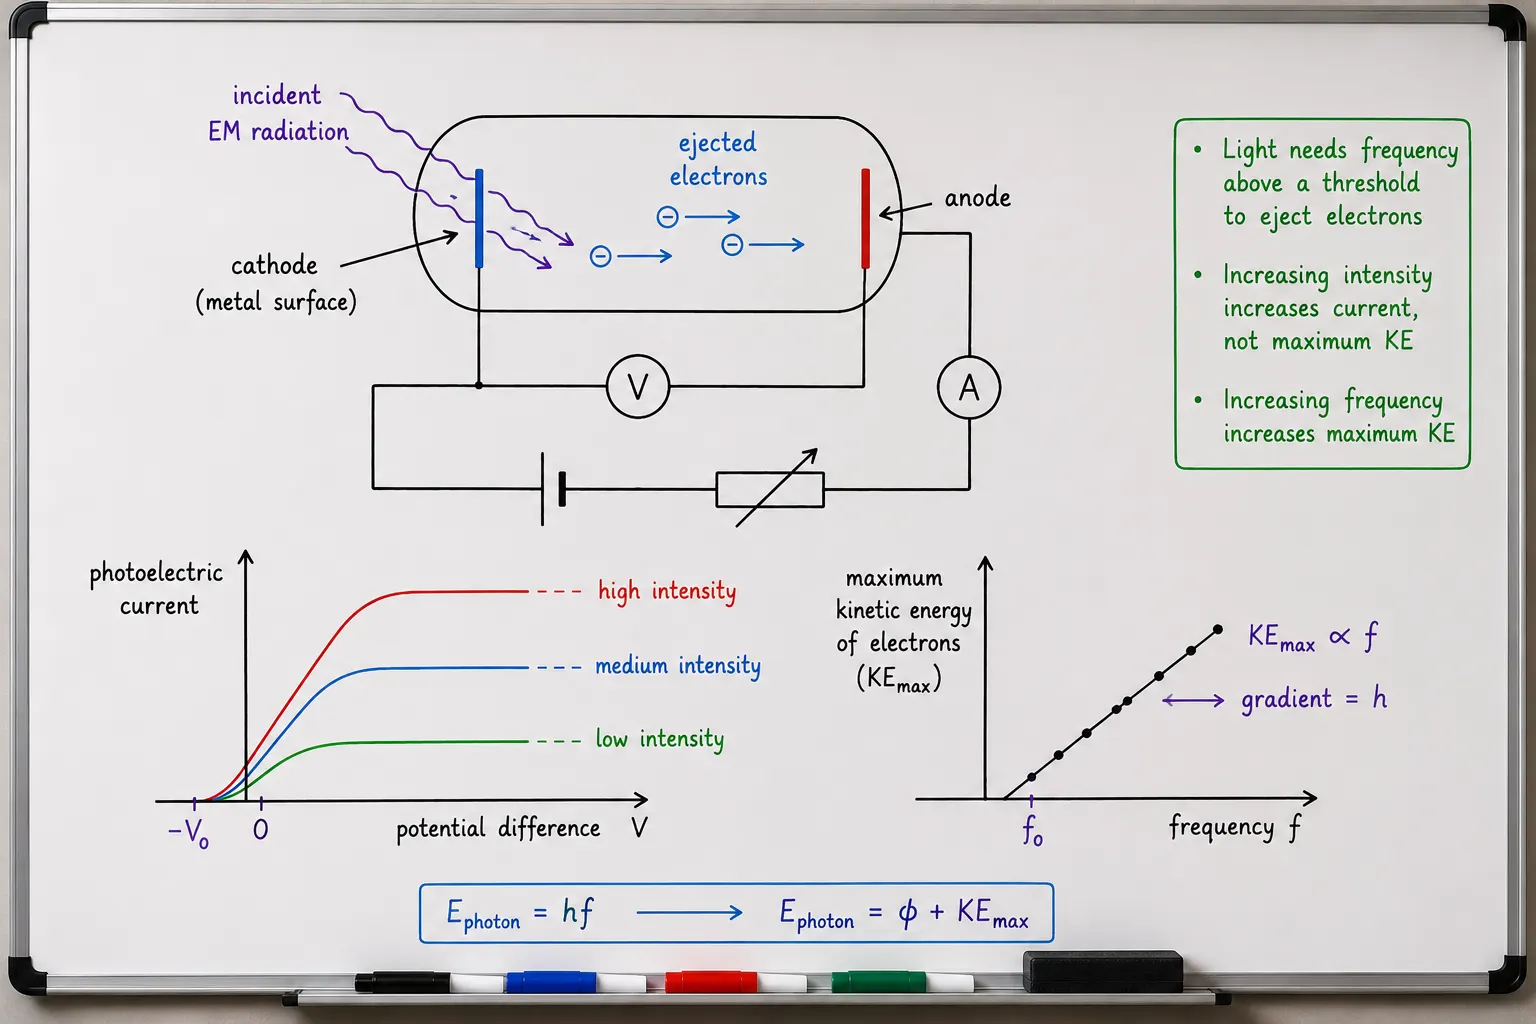 incident
EM radiation
ejected
electrons
anode
cathode
(metal surface)
V
A
• Light needs frequency
above a threshold
to eject electrons
• Increasing intensity
increases current,
not maximum KE
• Increasing frequency
increases maximum KE
photoelectric
current
high intensity
medium intensity
low intensity
-V₀
0
potential difference V
maximum
kinetic energy
of electrons
(KEmax)
KEmax ∝ f
gradient = h
f₀
frequency f
Ephoton = hf → Ephoton = ϕ + KEmax